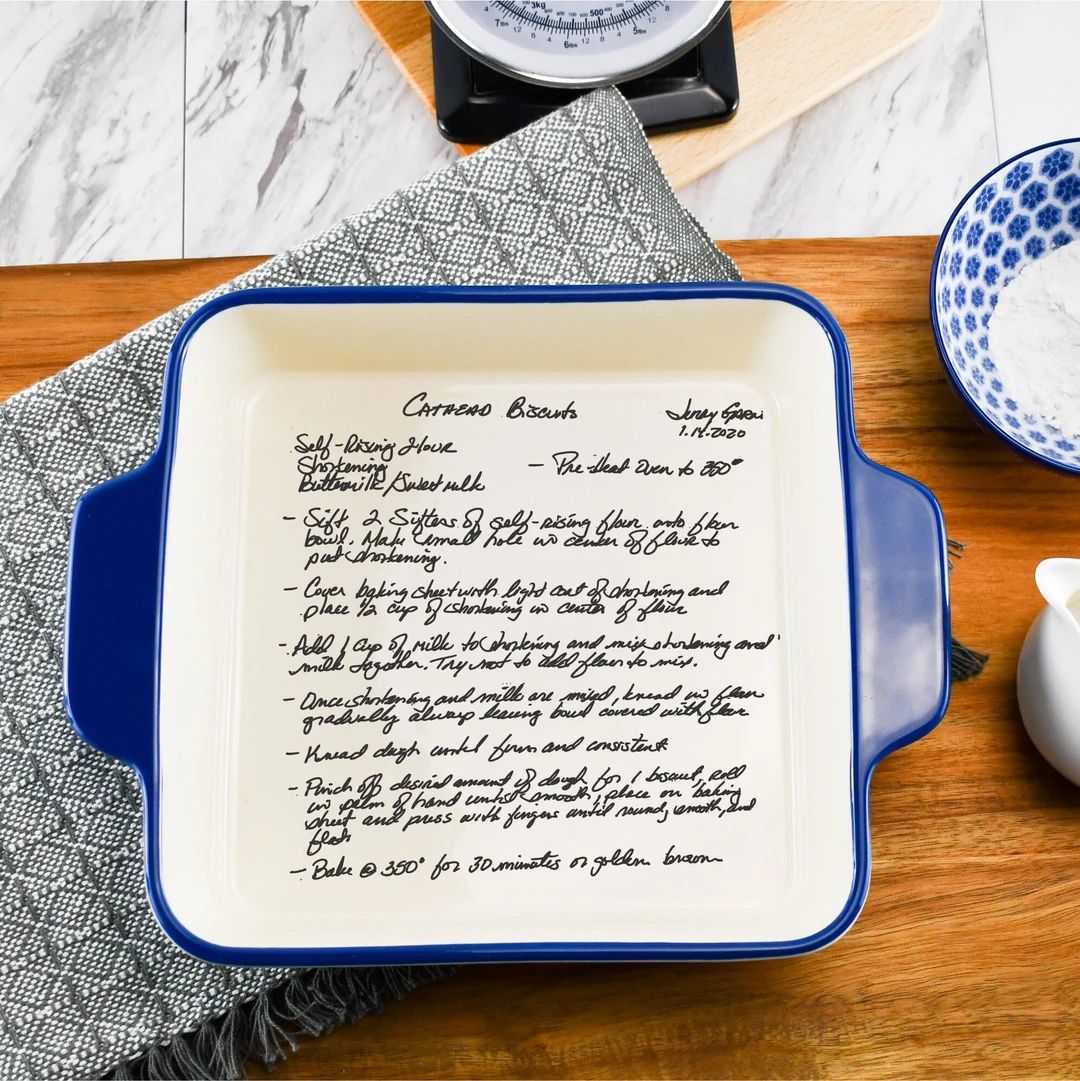 3kg 500
7lbs 6lbs 5lbs
CATHEAD BISCUITS
Jerry
1.14.2020
Self-Rising Flour
Shortening
Buttermilk/Sweetmilk
- Pre-Heat Oven to 350°
- Sift 2 Sifters of self-rising flour onto flour
bowl. Make small hole in center of flour to
put shortening.
- Cover baking sheet with light coat of shortening and
place 1/2 cup of shortening in center of flour
- Add 1 cup of milk to shortening and mix shortening and
milk together. Try not to add flour to mix.
- Once shortening and milk are mixed, knead in flour
gradually always leaving bowl covered with flour
- Knead dough until firm and consistent
- Pinch off desired amount of dough for 1 biscuit, roll
in palm of hand until smooth, place on baking
sheet and press with fingers until round, smooth, and
- Bake @ 350° for 30 minutes or golden brown